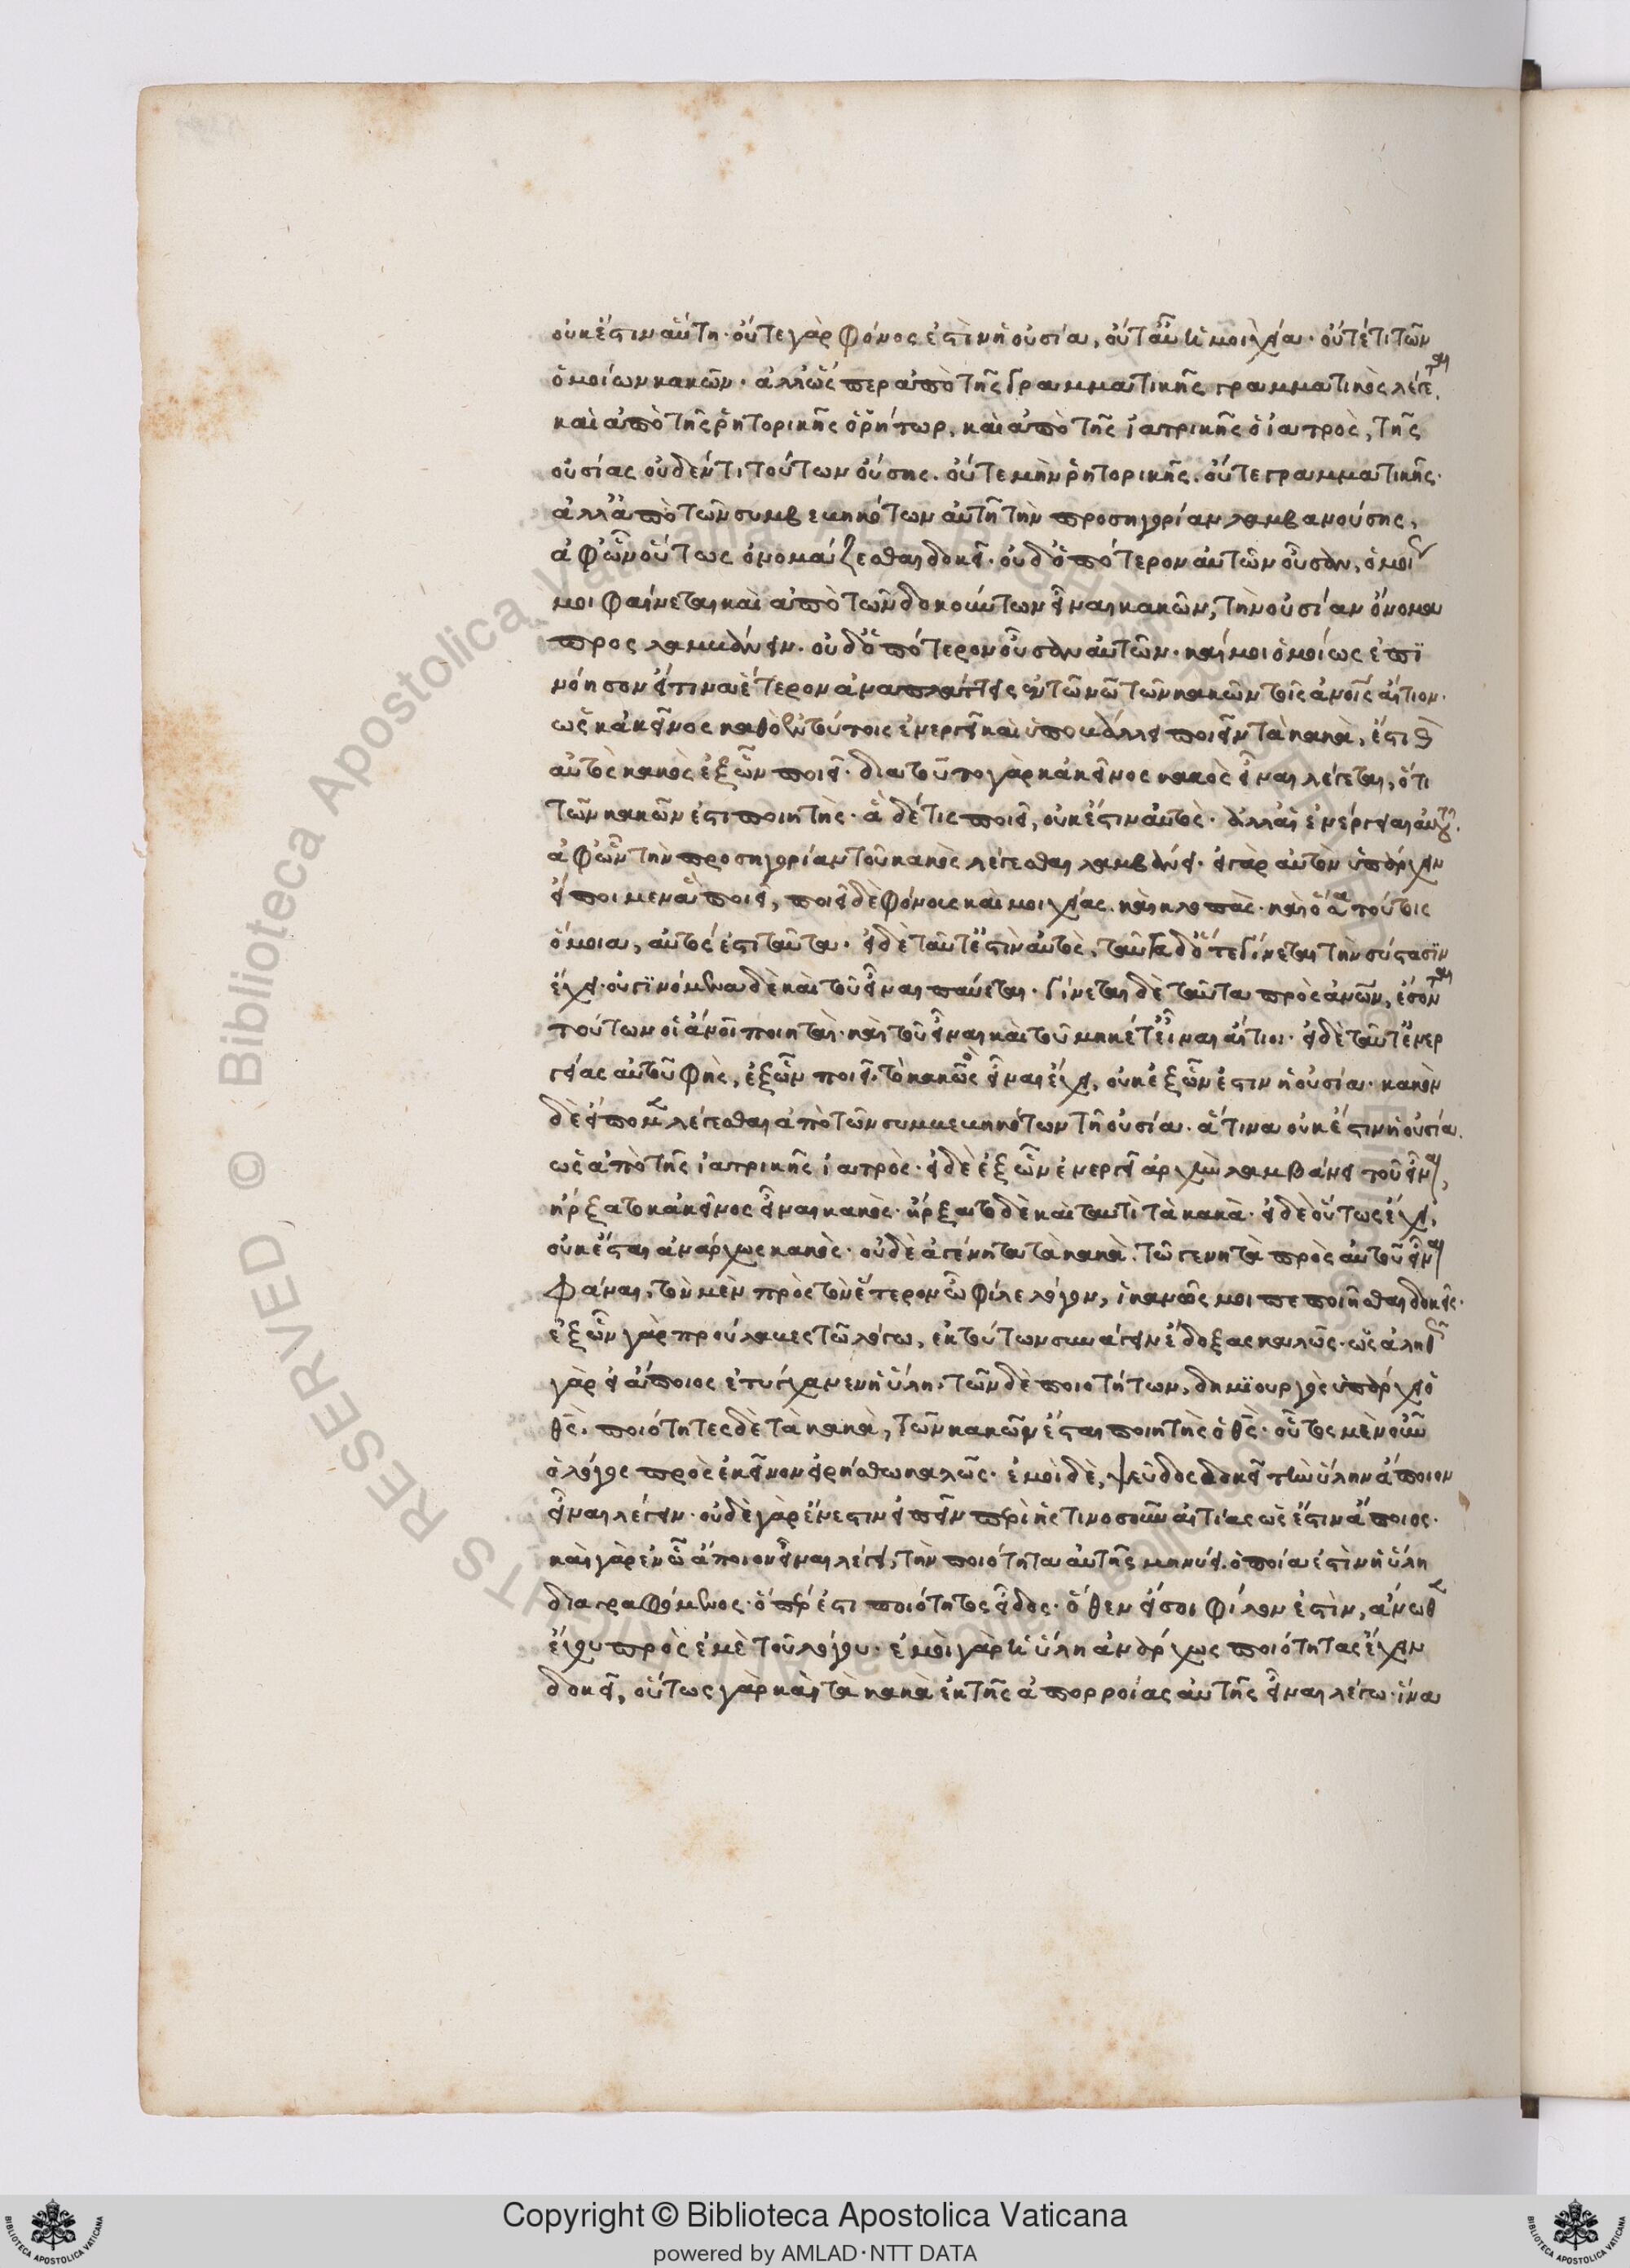 οὐκ ἔστιν αὕτη· οὔτε γὰρ φόνος ἐστὶν ἡ οὐσία, οὔτ' αὖ ἡ μοιχεία· οὔτέ τι τῶν
ὁμοίων κακῶν· ἀλλ' ὥσπερ ἀπὸ τῆς γραμματικῆς γραμματικὸς λέγεται,
καὶ ἀπὸ τῆς ῥητορικῆς ὁ ῥήτωρ, καὶ ἀπὸ τῆς ἰατρικῆς ὁ ἰατρὸς, τῆς
οὐσίας οὐδέν τι τούτων οὔσης. οὔτε μὴν ῥητορικῆς. οὔτε γραμματικῆς·
ἀλλ' ἀπὸ τῶν συμβεβηκότων αὐτῇ τὴν προσηγορίαν λαμβανούσης,
ἀφ' ὧν οὕτως ὀνομάζεσθαι δοκεῖ· οὐδ' ὁπότερον αὐτῶν οὖσαν, ὁμοίως
μοι φαίνεται καὶ ἀπὸ τῶν δοκούντων εἶναι κακῶν, τὴν οὐσίαν ὄνομα
προσλαμβάνειν. οὐδ' ὁπότερον οὖσαν αὐτῶν· καί μοι ὁμοίως ἐπι
νόησον εἴ τινα ἕτερον ἀναπλάττεις ἐν τῷ νῷ τῶν κακῶν τοῖς ἀνοις αἴτιον·
ὡς κἀκεῖνος καθὸ ἐν τούτοις ἐνεργεῖ καὶ ὑποβάλλει ποιεῖν τὰ κακὰ, ἔστι καὶ
αὐτὸς κακὸς ἐξ ὧν ποιεῖ· διὰ τοῦτο γὰρ κἀκεῖνος κακὸς εἶναι λέγεται, ὅτι
τῶν κακῶν ἐστι ποιητής· ἃ δέ τις ποιεῖ, οὐκ ἔστιν αὐτὸς· ἀλλ' αἱ ἐνέργειαι αὐτοῦ.
ἀφ' ὧν τὴν προσηγορίαν τοῦ κακὸς λέγεσθαι λαμβάνει· εἰ γὰρ αὐτὸν ὑπάρχειν
εἴποιμεν ἃ ποιεῖ, ποιεῖ δὲ φόνους καὶ μοιχείας. καὶ κλοπὰς· καὶ ὅσα τούτοις
ὅμοια, αὐτός ἐστι ταῦτα· εἰ δὲ ταῦτ' ἔστιν αὐτὸς, ταῦτα δ' ὅτε γίνεται τὴν σύστασιν
ἔχει· οὐ γινόμενα δὲ καὶ τοῦ εἶναι παύεται· γίνεται δὲ ταῦτα πρὸς ἀνων, ἔσονται
τούτων οἱ ἄνοι ποιηταὶ· καὶ τοῦ εἶναι καὶ τοῦ μηκέτ' εἶναι αἴτιοι· εἰ δὲ ταῦτ' ἐνερ
γείας αὐτοῦ φῂς, ἐξ ὧν ποιεῖ, τὸ κακὸς εἶναι ἔχει, οὐκ ἐξ ὧν ἐστιν ἡ οὐσία· κακὸν
δὲ εἴπομεν λέγεσθαι ἀπὸ τῶν συμβεβηκότων τῇ οὐσίᾳ· ἅτινα οὐκ ἔστιν ἡ οὐσία.
ὡς ἀπὸ τῆς ἰατρικῆς ἰατρὸς· εἰ δὲ ἐξ ὧν ἐνεργεῖ ἀρχὴν λαμβάνει τοῦ εἶναι,
ἤρξατο κἀκεῖνος εἶναι κακὸς· ἤρξατο δὲ καὶ ταυτὶ τὰ κακὰ· εἰ δὲ οὕτως ἔχει,
οὐκ ἔσται ἀνάρχως κακὸς· οὐδὲ ἀγένητα τὰ κακὰ. τῷ γενητὰ πρὸς αὐτοῦ εἶναι
φάναι, τὸν μὲν πρὸς τὸν ἕτερον ὦ φίλε λόγον, ἱκανῶς μοι πεποιῆσθαι δοκεῖς·
ἐξ ὧν γὰρ προύλαβες τῷ λόγῳ, ἐκ τούτων συνάγειν ἔδοξας καλῶς· ὡς ἀληθῶς
γὰρ εἰ ἄποιος ἐτύγχανεν ἡ ὕλη, τῶν δὲ ποιοτήτων, δημιουργὸς ὑπάρχει ὁ
θς, ποιότητες δὲ τὰ κακὰ, τῶν κακῶν ἔσται ποιητὴς ὁ θς· οὗτος μὲν οὖν
ὁ λόγος πρὸς ἐκεῖνον εἰρήσθω καλῶς· ἐμοὶ δὲ, ψεῦδος δοκεῖ τὴν ὕλην ἄποιον
εἶναι λέγειν· οὐδὲ γὰρ ἔνεστιν εἰπεῖν περὶ ἧς τινοσοῦν αἰτίας ὡς ἔστιν ἄποιος·
καὶ γὰρ ἐν ᾧ ἄποιον εἶναι λέγει, τὴν ποιότητα αὐτῆς μηνύει. ὁποία ἐστὶν ἡ ὕλη
διαγραφόμενος· ὅπερ ἐστὶ ποιότητος εἶδος· ὅθεν εἴ σοι φίλον ἐστὶν, ἄνωθεν
ἔχου πρὸς ἐμὲ τοῦ λόγου· ἐμοὶ γὰρ ἡ ὕλη ἀνάρχως ποιότητας ἔχειν
δοκεῖ, οὕτως γὰρ καὶ τὰ κακὰ ἐκ τῆς ἀπορροίας αὐτῆς εἶναι λέγω· ἵνα
Copyright © Biblioteca Apostolica Vaticana
powered by AMLAD·NTT DATA